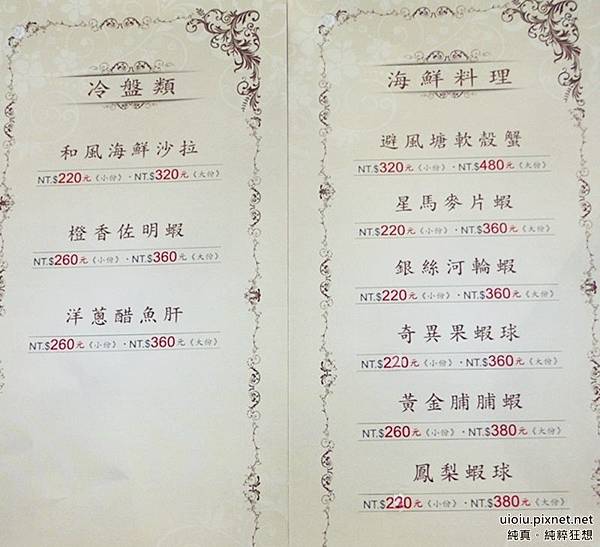 冷盤類
和風海鮮沙拉
NT.$220元《小份》・NT.$320元《大份》
橙香佐明蝦
NT.$260元《小份》・NT.$360元《大份》
洋蔥醋魚肝
NT.$260元《小份》・NT.$360元《大份》
海鮮料理
避風塘軟殼蟹
NT.$320元《小份》・NT.$480元《大份》
星馬麥片蝦
NT.$220元《小份》・NT.$360元《大份》
銀絲河輪蝦
NT.$220元《小份》・NT.$360元《大份》
奇異果蝦球
NT.$220元《小份》・NT.$360元《大份》
黃金脯脯蝦
NT.$260元《小份》・NT.$380元《大份》
鳳梨蝦球
NT.$220元《小份》・NT.$380元《大份》
uioiu.pixnet.net
純真・純粹狂想